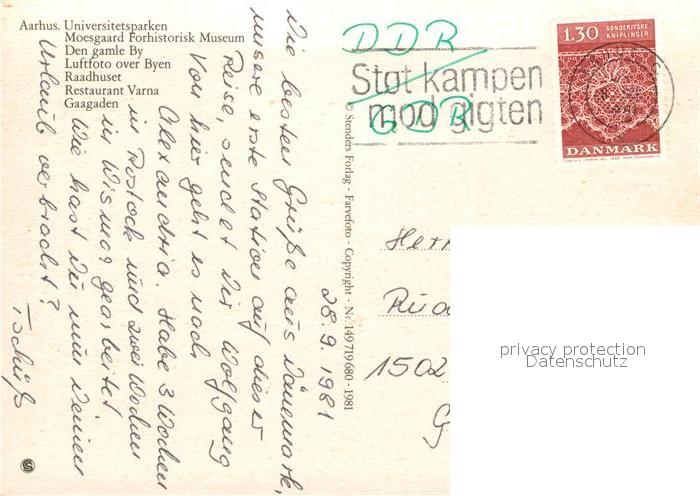 Aarhus. Universitetsparken
Moesgaard Forhistorisk Museum
Den gamle By
Luftfoto over Byen
Raadhuset
Restaurant Varna
Gaagaden
DDR
Støt kampen
mod gigten
GDR
1.30 SØNDERJYSKE
KNIPLINGER
DANMARK
© Stenders Forlag - Farvefoto - Copyright - Nr. 149 719 680 - 1981
28.9.1981
Die besten Grüße aus Dänemark,
unsere erste Station auf dieser
Reise, sendet Dir Wolfgang
Von hier geht es nach
Alexandria. Habe 3 Wochen
in Rostock und zwei Wochen
in Wismar gearbeitet.
Wie hast Du nun Deinen
Urlaub verbracht?
Tschüß
Herr
1502
privacy protection
Datenschutz